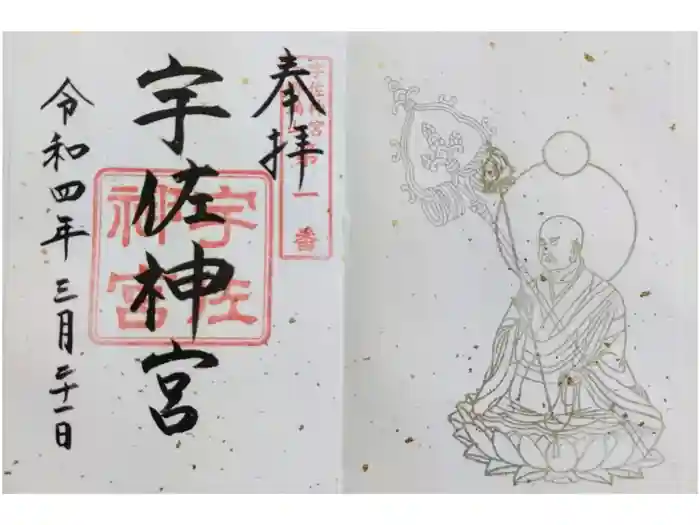 奉拝
宇佐神宮
令和四年三月二十一日
宇佐
神宮
第一番